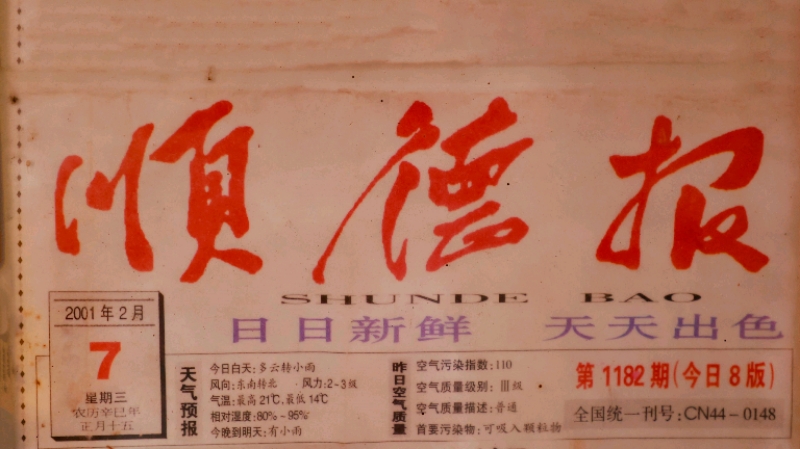 順德报
SHUNDE BAO
日日新鲜 天天出色
2001年2月
7
星期三
农历辛巳年
正月十五
天气预报
今日白天:多云转小雨
风向:东南转北 风力:2~3级
气温:最高21℃,最低14℃
相对湿度:80%-95%
今晚到明天:有小雨
昨日空气质量
空气污染指数:110
空气质量级别:Ⅲ级
空气质量描述:普通
首要污染物:可吸入颗粒物
第1182期(今日8版)
全国统一刊号:CN44-0148